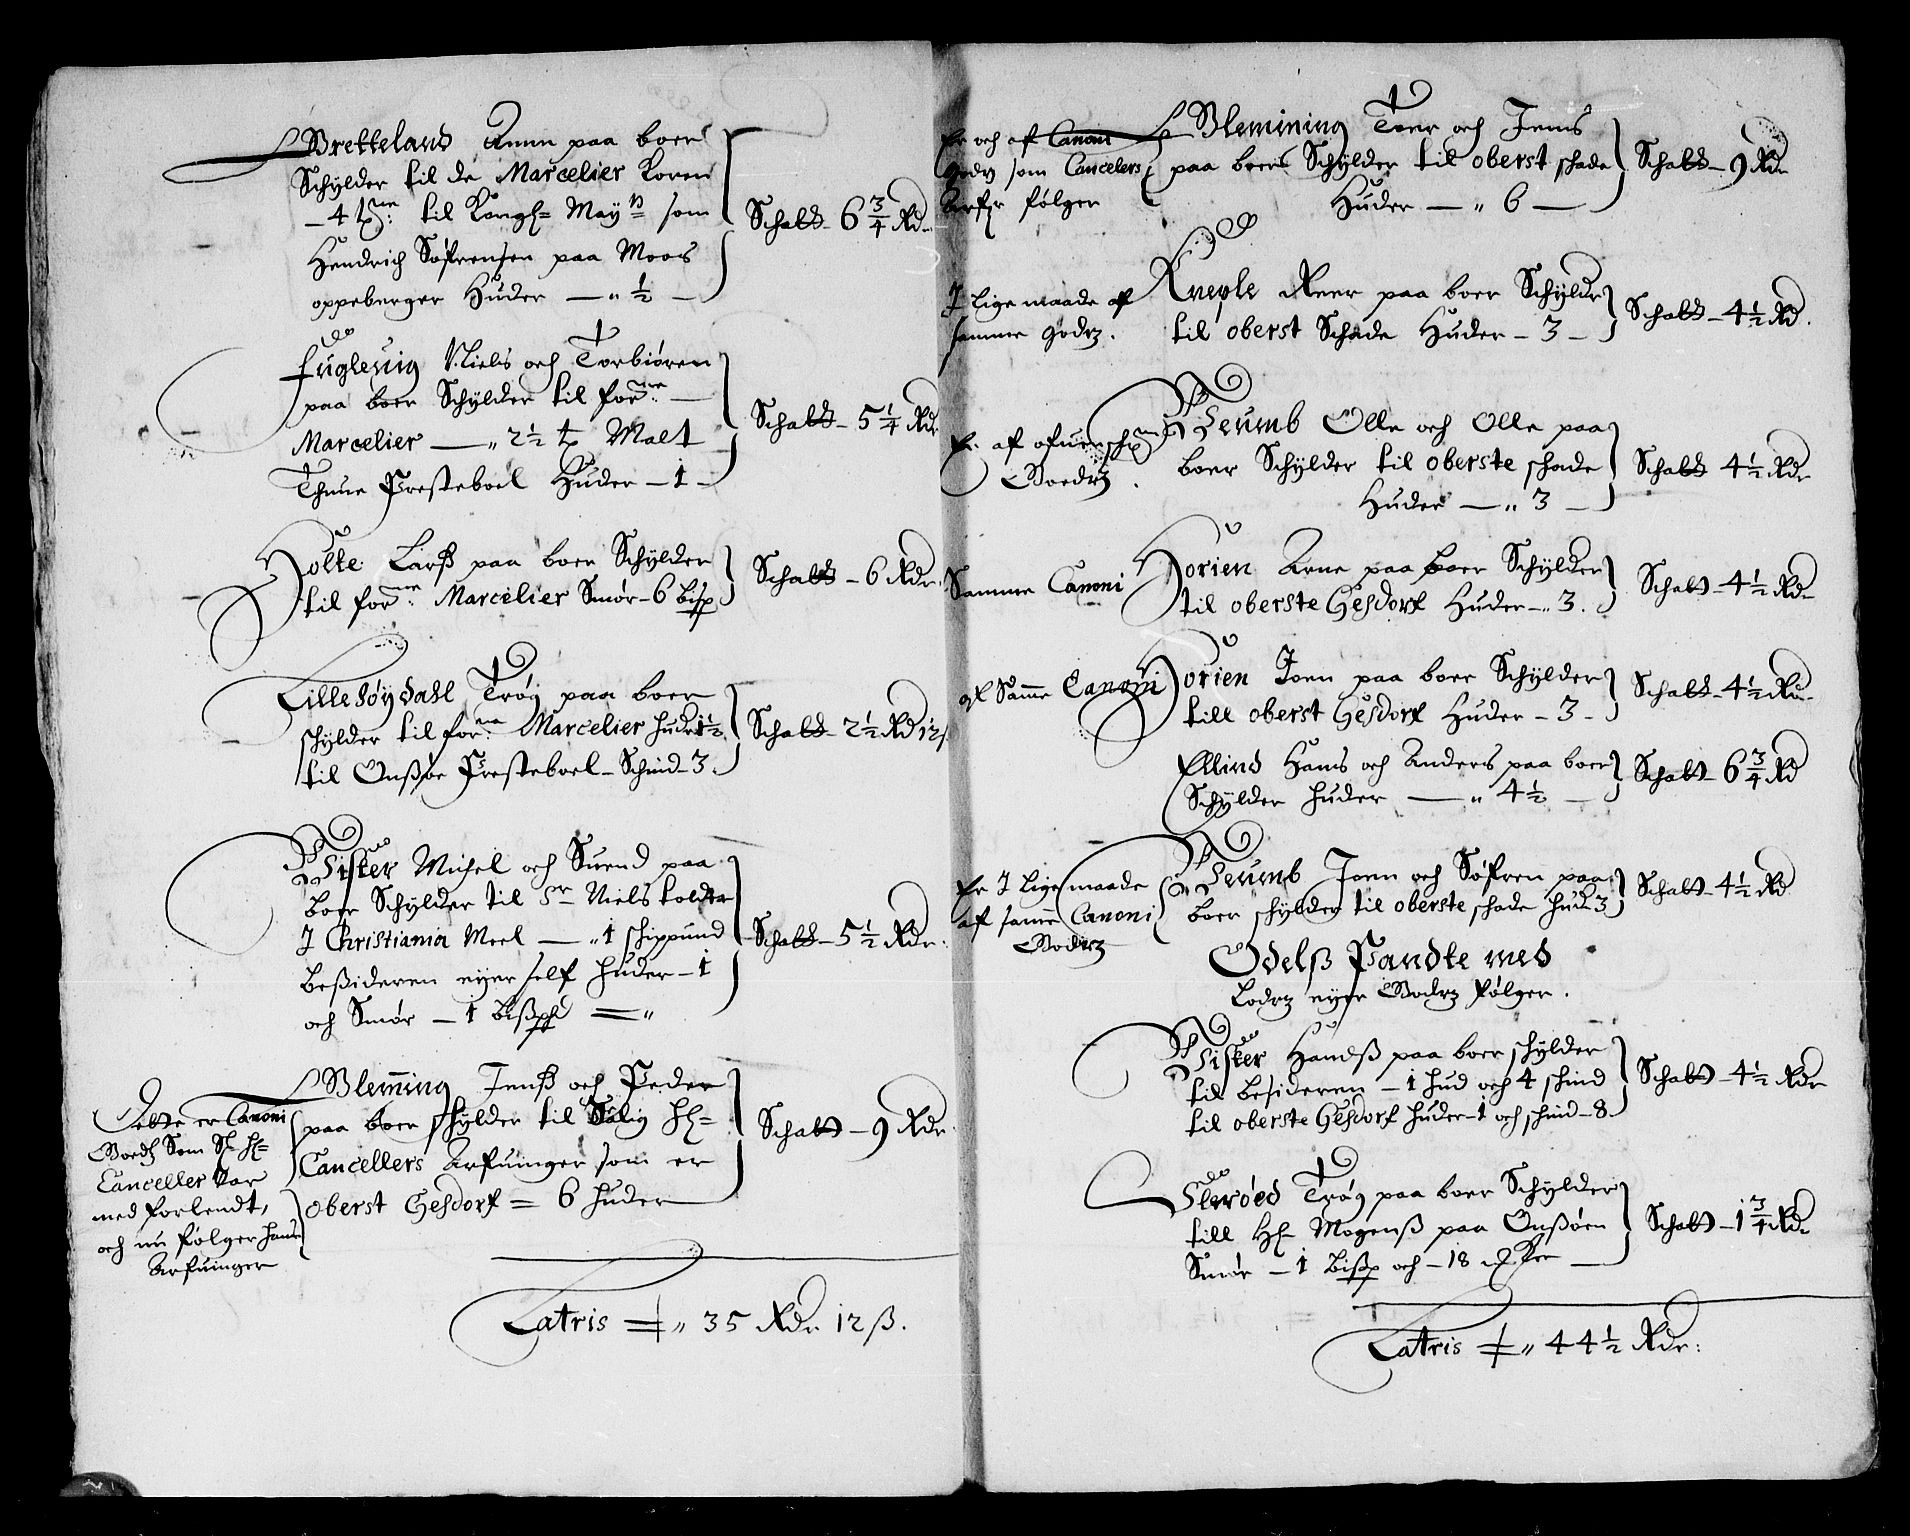 Bretteland Amm paa boer
Schÿlder til de Marcelier Koren
– 4 tne: til Kongl= Mayts som
Hendrich Søfrensen paa Moos
oppeberger Huder — „ ½ —
Schatt – 6 ¾ Rd
Fuglevig Niels och Torbiøren
paa boer Schÿlder til forne: —
Marcelier — „ 2½ t Malt
Thune Presteboel Huder – 1 –
Schatt – 5 ¼ Rdr
Holte Larß paa boer Schÿlder
til forne: Marcelier Smør – 6 bisp
Schatt – 6 Rdr:
Lillesøÿdahl Trøg paa boer
schÿlder til forne: Marcelier hudr 1½
til Onßøe Presteboel – Schind – 3.
Schatt – 2½ Rd 12ß
Wister Michel och Suend paa
boer Schÿlder til Sr Niels tolder
J Christiania Meel — „ 1 schippund
Beßideren eyer self huder – 1
och Smør – 1 bißpd = „
Schatt – 5½ Rdr:
Dette er Canoni
Goedz Som Sl Hl=
Canceller Var
med forlendt,
och nu følger hans
Arfuinger
Blem̄ing Jenß och Peder
paa boer schÿlder til Salig Hl=
Cancellers Arfuinger som er
oberst Gesdorf = 6 huder
Schatt – 9 Rdr.
Latris = „ 35 Rdr. 12 ß.
Er och af Canoni
godz som Cancelers
Arfr følger
Blemining Toer och Jens
paa boer Schÿlder til oberst schade
Huder — „ 6 —
Schatt – 9 Rdr
J lige maade af
samme godz.
Kneple Reer paa boer Schÿldr
til oberst Schade Huder – 3 –
Schatt – 4½ Rd.
Er af ofuenschr
Goedz.
Seumb Olle och Olle paa
boer Schÿlder til oberste schade
Huder — „ 3 —
Schatt 4½ Rdr
Samme Canoni
Horien Arne paa boer Schÿlder
til oberste Gesdorf Huder – „ 3.
Schatt – 4½ Rd
af Sam̄e Canoni
Horien Joen paa boer Schÿlder
till oberst Gesdorf Huder – 3 –
Schatt – 4½ Rd
Ellind Hans och Anders paa boer
Schÿlder huder — „ 4½ —
Schatt – 6 ¾ Rd
Er J lige maade
af same Canoni
Godz
Seumb Joen och Søfren paa
boer schÿlder til oberste schade hud 3
Schatt – 4½ Rd
Odelß Pandte med
Lodz eyer Godz følger.
Wister Handß paa boer schÿlder
til besideren – 1 hud och 4 schind
til oberste Gesdorf huder – 1 och schind – 8.
Schatt – 4½ Rdr
Slerøed Trøg paa boer Schÿlder
till Hl Mogenß paa Onßøen
Smør – 1 bißp och – 18 Rer —
Schatt – 1 ¾ Rdr
Latris = „ 44½ Rdr: